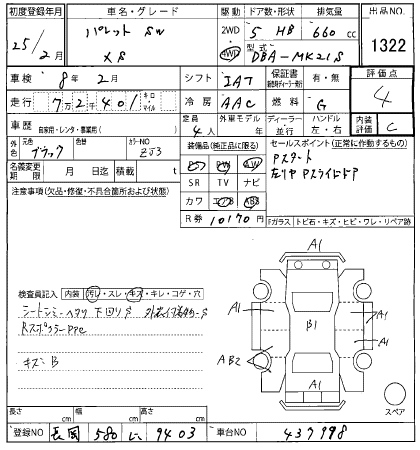 初度登録年月 車名・グレード 駆動 ドア数・形状 排気量 出品NO.
25/2月 パレット SW 2WD 5 HB 660 cc 1322
XS 4WD 型式 DBA-MK21S
車検 8年2月 シフト IAT 保証書 有・無 評価点
走行 7万2千401 キロ・マイル 冷房 AAC 燃料 G 4
車歴 自家用・レンタ・事業用( ) 定員 4人 外車モデル 年 ディーラー・並行 ハンドル 左・右 内装評価 C
外色 元色 ブラック 色替 カラーNO ZJ3 装備品(純正品に限る) セールスポイント(正常に作動するもの)
名義変更期限 月 日迄 積載 t PS PW AW Pスタート
注意事項(欠品・修復・不具合箇所および状態) SR TV ナビ 左リヤ Pスライドドア
カワ エアB ABS
R券 10170円 Fガラス トビ石・キズ・ヒビ・ワレ・リペア跡
A1
検査員記入 内装 汚レ・スレ・キズ・キレ・コゲ・穴
シート 下回りS
A1 B1 A1
A1
キズ B AB2
A1
スペア
長さ cm 幅 cm 高さ cm
登録NO 長岡 580 い 9403 車台NO 437998